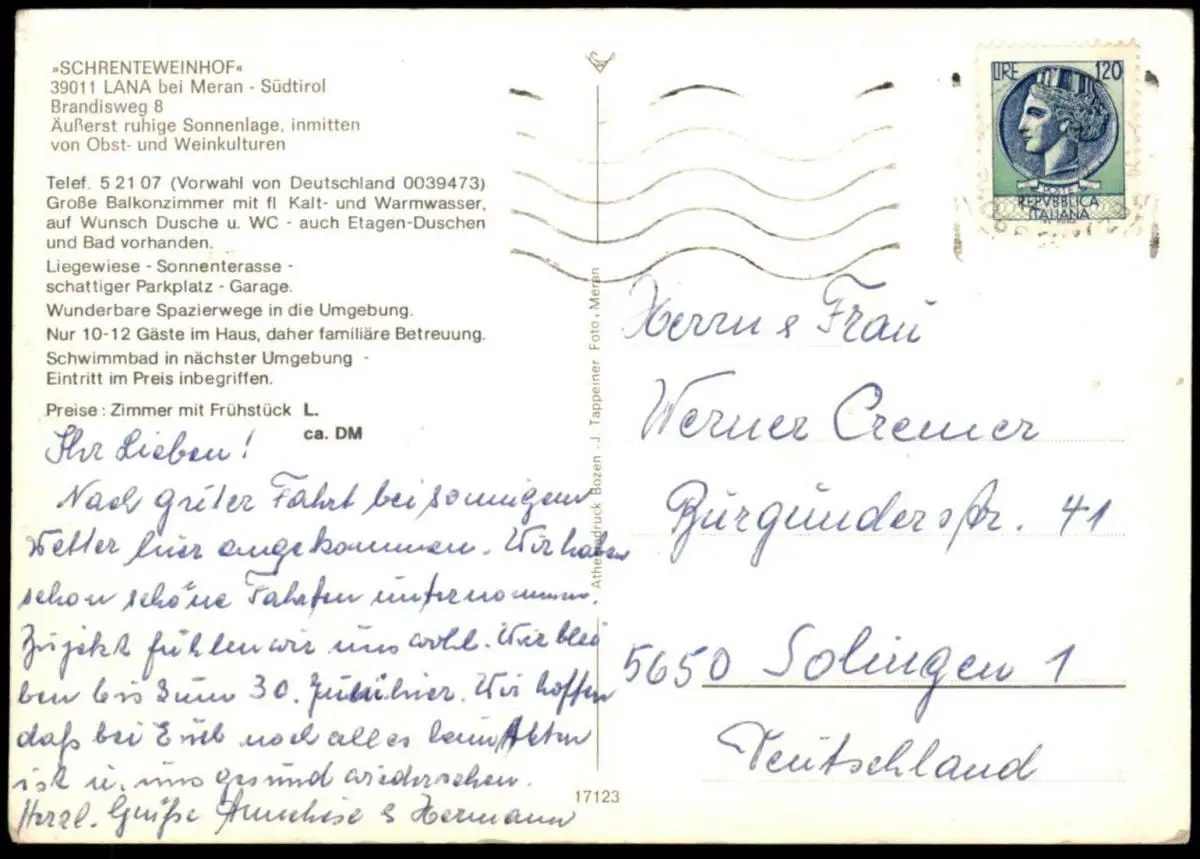 »SCHRENTEWEINHOF«
39011 LANA bei Meran - Südtirol
Brandisweg 8
Äußerst ruhige Sonnenlage, inmitten
von Obst- und Weinkulturen
Telef. 5 21 07 (Vorwahl von Deutschland 0039473)
Große Balkonzimmer mit fl Kalt- und Warmwasser,
auf Wunsch Dusche u. WC - auch Etagen-Duschen
und Bad vorhanden.
Liegewiese - Sonnenterasse -
schattiger Parkplatz - Garage.
Wunderbare Spazierwege in die Umgebung.
Nur 10-12 Gäste im Haus, daher familiäre Betreuung.
Schwimmbad in nächster Umgebung -
Eintritt im Preis inbegriffen.
Preise : Zimmer mit Frühstück L.
ca. DM
Ihr Lieben!
Nach guter Fahrt bei sonnigem
Wetter hier angekommen. Wir haben
schon schöne Fahrten unternommen.
Zujetzt fühlen wir uns wohl. Wir blei
ben bis zum 30. hier. Wir hoffen
daß bei Euch noch alles beim Alten
ist u. uns gesund wiedersehen.
Herzl. Grüße Anneliese & Hermann
Athesiadruck Bozen - J. Tappeiner Foto, Meran
17123
LIRE 120
POSTE
REPVBBLICA
ITALIANA
Herrn & Frau
Werner Cremer
Burgunderstr. 41
5650 Solingen 1
Deutschland